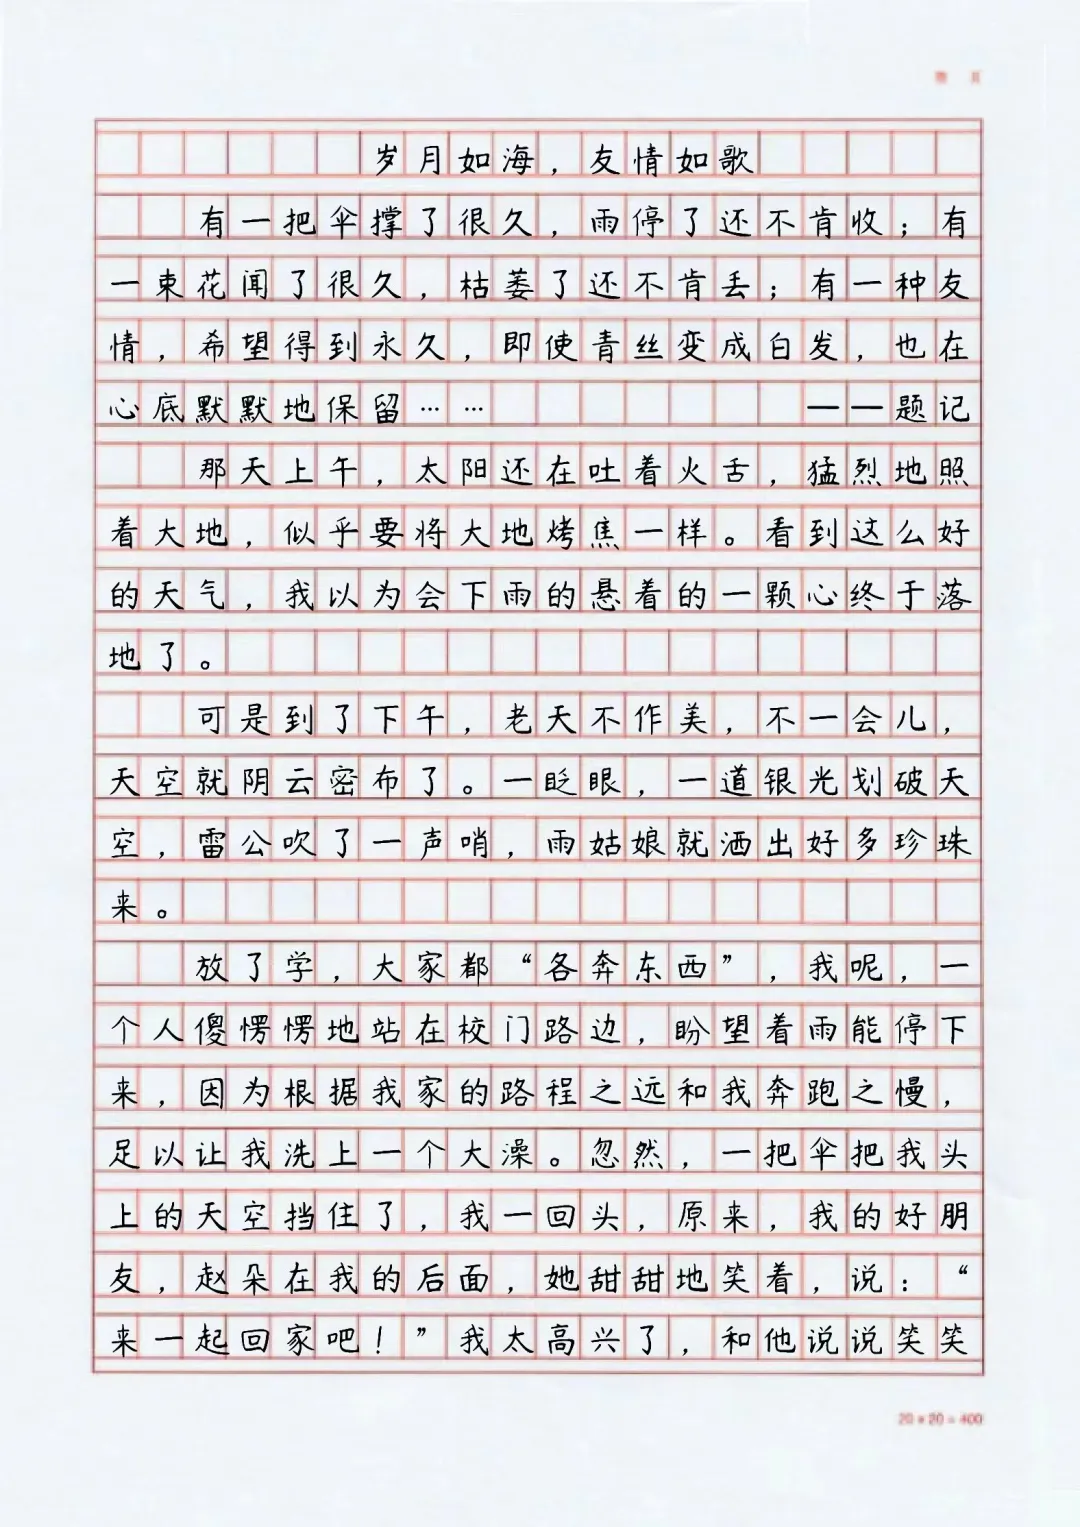 岁月如海，友情如歌
有一把伞撑了很久，雨停了还不肯收；有
一束花闻了很久，枯萎了还不肯丢；有一种友
情，希望得到永久，即使青丝变成白发，也在
心底默默地保留…… ——题记
那天上午，太阳还在吐着火舌，猛烈地照
着大地，似乎要将大地烤焦一样。看到这么好
的天气，我以为会下雨的悬着的一颗心终于落
地了。
可是到了下午，老天不作美，不一会儿，
天空就阴云密布了。一眨眼，一道银光划破天
空，雷公吹了一声哨，雨姑娘就洒出好多珍珠
来。
放了学，大家都“各奔东西”，我呢，一
个人傻愣愣地站在校门路边，盼望着雨能停下
来，因为根据我家的路程之远和我奔跑之慢，
足以让我洗上一个大澡。忽然，一把伞把我头
上的天空挡住了，我一回头，原来，我的好朋
友，赵朵在我的后面，她甜甜地笑着，说：“
来一起回家吧！”我太高兴了，和他说说笑笑
20×20=400